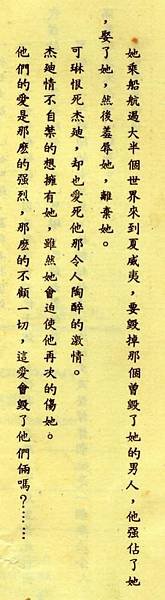 她乘船航過大半個世界來到夏威夷，要毀掉那個曾毀了她的男人，他强佔了她
，娶了她，然後羞辱她，離棄她。
可琳恨死杰廸，却也愛死他那令人陶醉的激情。
杰廸情不自禁的想擁有她，雖然她會迫使他再次的傷她。
他們的愛是那麽的强烈，那麽的不顧一切，這愛會毀了他們倆嗎？……